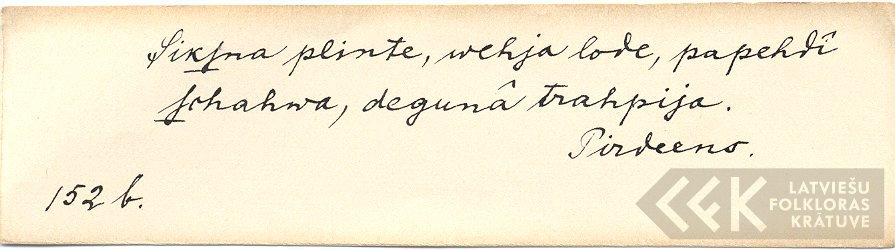 Sikſna plinte, wehja lode, papehdî
ſchahwa, degunâ trahpija.
Pirdeens.
152 b.
LFK
LATVIEŠU
FOLKLORAS
KRĀTUVE